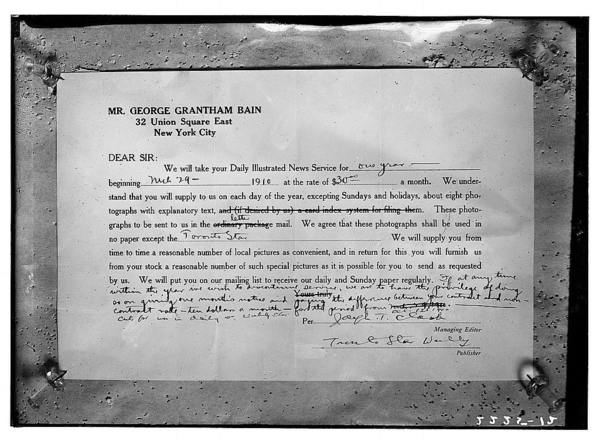 MR. GEORGE GRANTHAM BAIN
32 Union Square East
New York City
DEAR SIR:
We will take your Daily Illustrated News Service for one year
beginning Mch 29 - 1910 at the rate of $30.00 a month. We under-
stand that you will supply to us on each day of the year, excepting Sundays and holidays, about eight pho-
tographs with explanatory text, and (if desired by us) a card index system for filing them. These photo-
graphs to be sent to us in the ordinary package letter mail. We agree that these photographs shall be used in
no paper except the Toronto Star We will supply you from
time to time a reasonable number of local pictures as convenient, and in return for this you will furnish us
from your stock a reasonable number of such special pictures as it is possible for you to send as requested
by us. We will put you on our mailing list to receive our daily and Sunday paper regularly. If at any time
within the year we wish to discontinue service, we are to have the privilege of doing
so on giving one month's notice and paying the difference between your contract and non-
Yours truly
contract rate - ten dollars a month - for the period from
Per Jos. T. Clark
Managing Editor
Star Weekly
Publisher